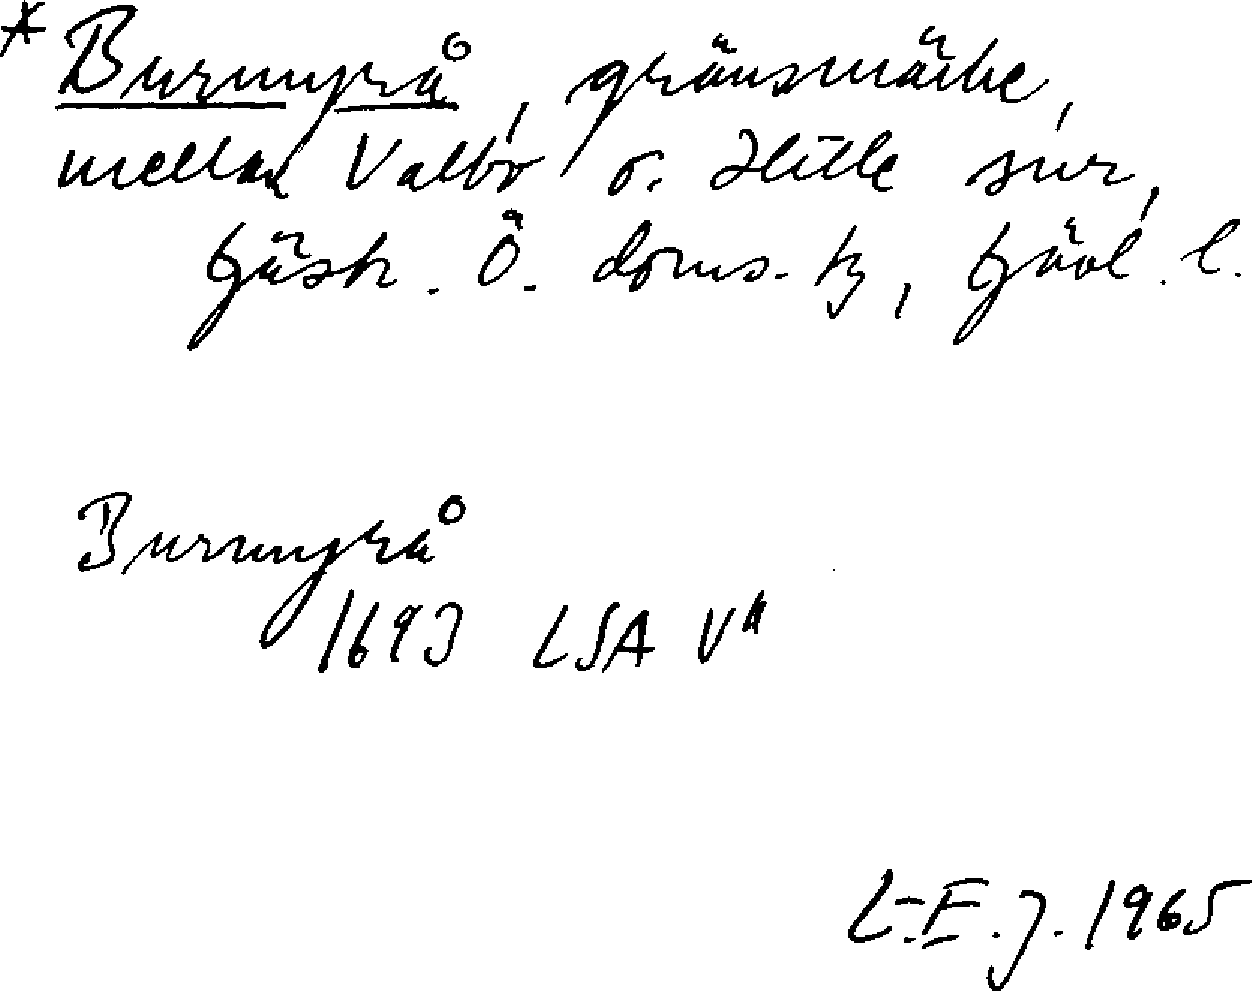 * Burmyrå, gränsmärke,
mellan Valbo o. Hille snr,
Gästr. Ö. doms. tg, Gävl. l.
Burmyrå
1693 LSA V"
L.E.J. 1965